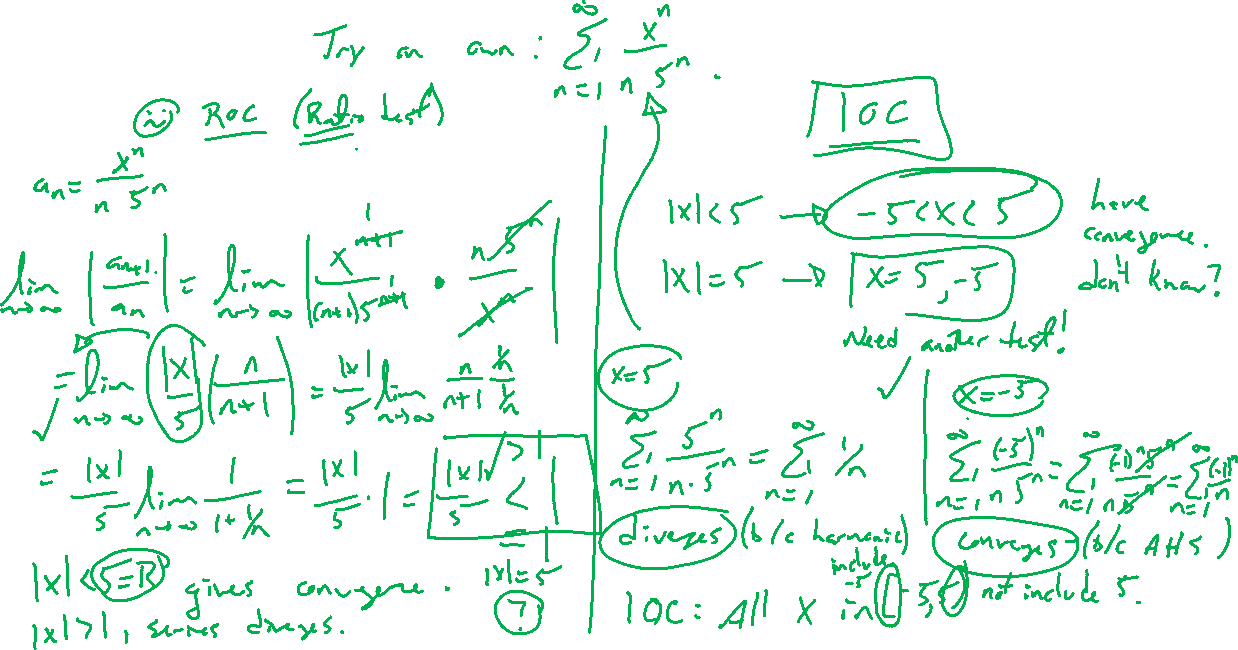 Try on own : ∑_{n=1}^{∞} x^n / (n 5^n) .
ROC (Ratio test)
a_n = x^n / (n 5^n)
lim_{n→∞} |a_{n+1} / a_n| = lim_{n→∞} | x^{n+1} / ((n+1) 5^{n+1}) · n 5^n / x^n |
= lim_{n→∞} |x|/5 (n/(n+1)) = |x|/5 lim_{n→∞} n/(n+1) (1/n)/(1/n)
= |x|/5 lim_{n→∞} 1/(1 + 1/n) = |x|/5 · 1 = |x|/5 < 1
> 1
= 1
|x| < 5 = R gives convergence .
|x| = 5
?
|x| > 1, series diverges.
IOC
|x| < 5 → -5 < x < 5 have convergence.
|x| = 5 → x = 5, -5 don't know?
Need another test!
x = 5
∑_{n=1}^{∞} 5^n / (n · 5^n) = ∑_{n=1}^{∞} 1/n
diverges (b/c harmonic)
x = -5
∑_{n=1}^{∞} (-5)^n / (n 5^n) = ∑_{n=1}^{∞} (-1)^n 5^n / (n 5^n) = ∑_{n=1}^{∞} (-1)^n / n
converges (b/c AHS)
include -5
IOC: All x in [-5, 5) not include 5.